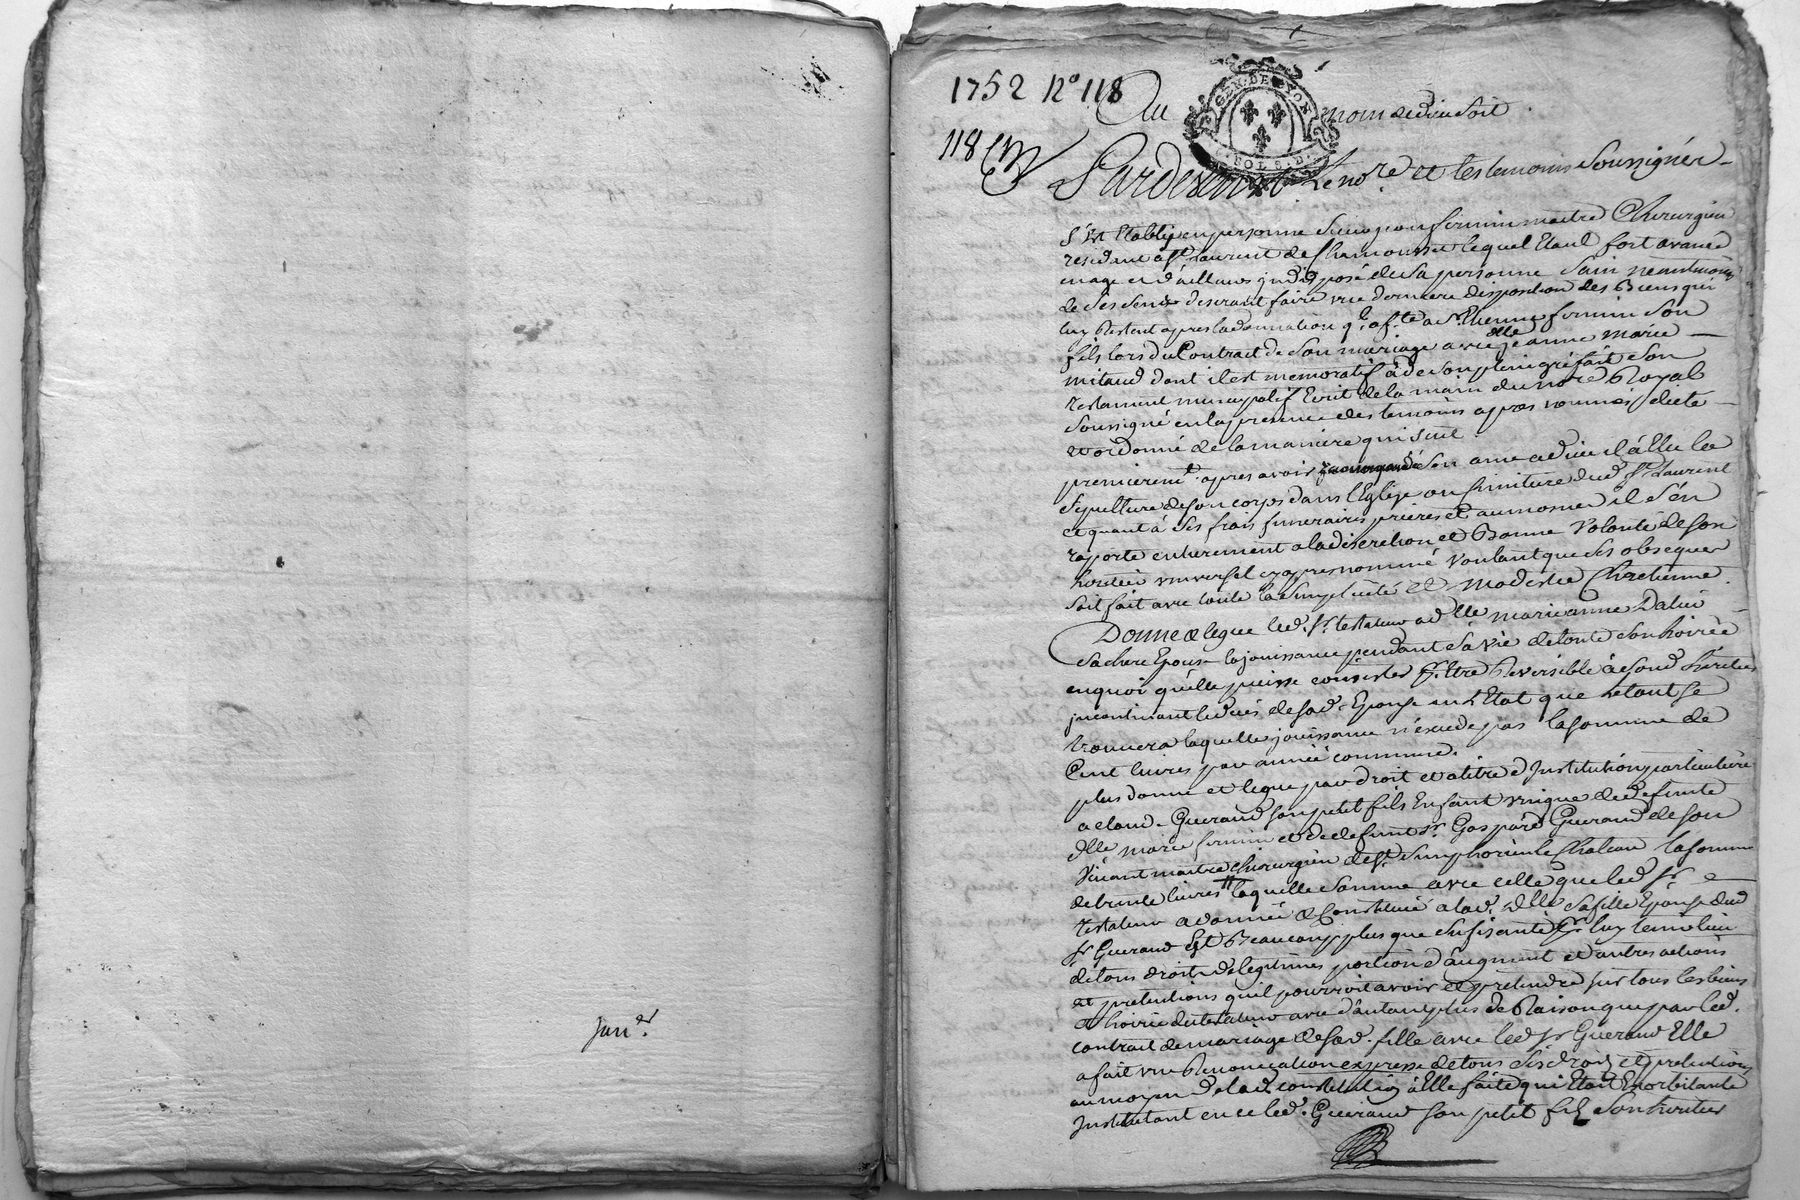 Jan.er
1752 N° 118
118
Au nom de dieu soit
GEN. DE LYON
SOL 8. D.
Pardevant Le no.re et tes temoins Soussignés
s'est Etably en personne sieur jean firmin maitre Chirurgien
resident a St Laurent de Chamousset lequel Etant fort avancé
en age et d'ailleurs jndisposé de sa personne sain neantmoins
de ses sens desirant faire une derniere disposition des Biens qui
luy Restent apres la donnation q.l a f.te a Sr. Etienne firmin son
fils lors du Contract de son mariage avec dlle jeanne marie
mitaud dont il est memoratif à de son plein gré fait son
testament nuncupatif Ecrit de la main du no.re Royal
soussigné en la presence des temoins apres nommés dicté
et ordonné de la maniere qui suit.
premierem.t apres avoir son ame a dieu il a Elu la
sepulture de son corps dans l'Eglise ou cimitiere dud. St. Laurent
et quant à ses frais funeraires prieres et aumosnes il s'en
raporte entierement a la discretion et Bonne Volonté de son
heritier universel cy apres nommé voulant que ses obseques
soit fait avec toute la simplicité et modestie Chretienne.
Donne & legue led. Sr. testateur a dlle marie anne
sa chere Epouse la jouissance pendant sa vie de toute son hoirie
en quoi qu'elle puisse consister p.r Etre Reversible à sond. heritier
jncontinant le deces de sad. Epouse en l'Etat que le tout se
trouvera laquelle jouissance n'excede pas la somme de
Cent livres par année commune.
plus donne et legue par droit et a titre d'Institution particuliere
a Guerand son petit fils Enfant unique de defunte
dlle marie firmin et de defunt Sr. Gaspard Guerand de son
vivant maitre chirurgien de St. simphorien le Chateau la somme
de trente livres laquelle somme avec celle que led. Sr.
testateur a donnée & Constituée a lad. dlle sa fille Epouse dud.
Sr. Guerand Est Beaucoup plus que sufisante p.r luy tenir lieu
de tous droits de legitimes portion d'augment et d'autres actions
et pretentions qu'il pourroit avoir et pretendre sur tous les biens
& hoirie du testateur avec d'autant plus de Raison que par led.
contract de mariage de sad. fille avec led. Sr. Guerand Elle
a fait une Renonciation expresse de tous ses droits et pretentions
au moyen de lad. constitution à Elle faite qui Etait Exorbitante
Instituant en ce led. Guerand son petit fils son heritier